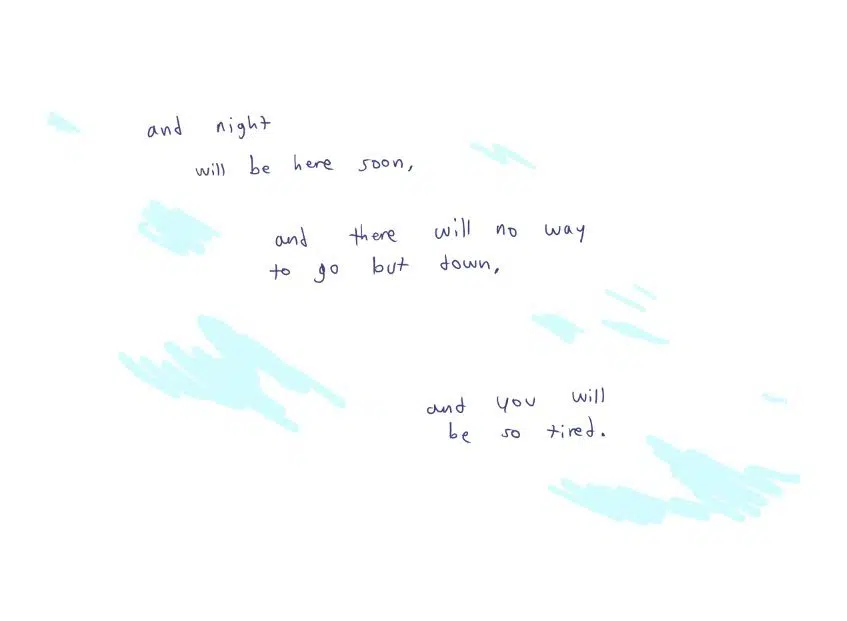 and night
will be here soon,
and there will no way
to go but down,
and you will
be so tired.